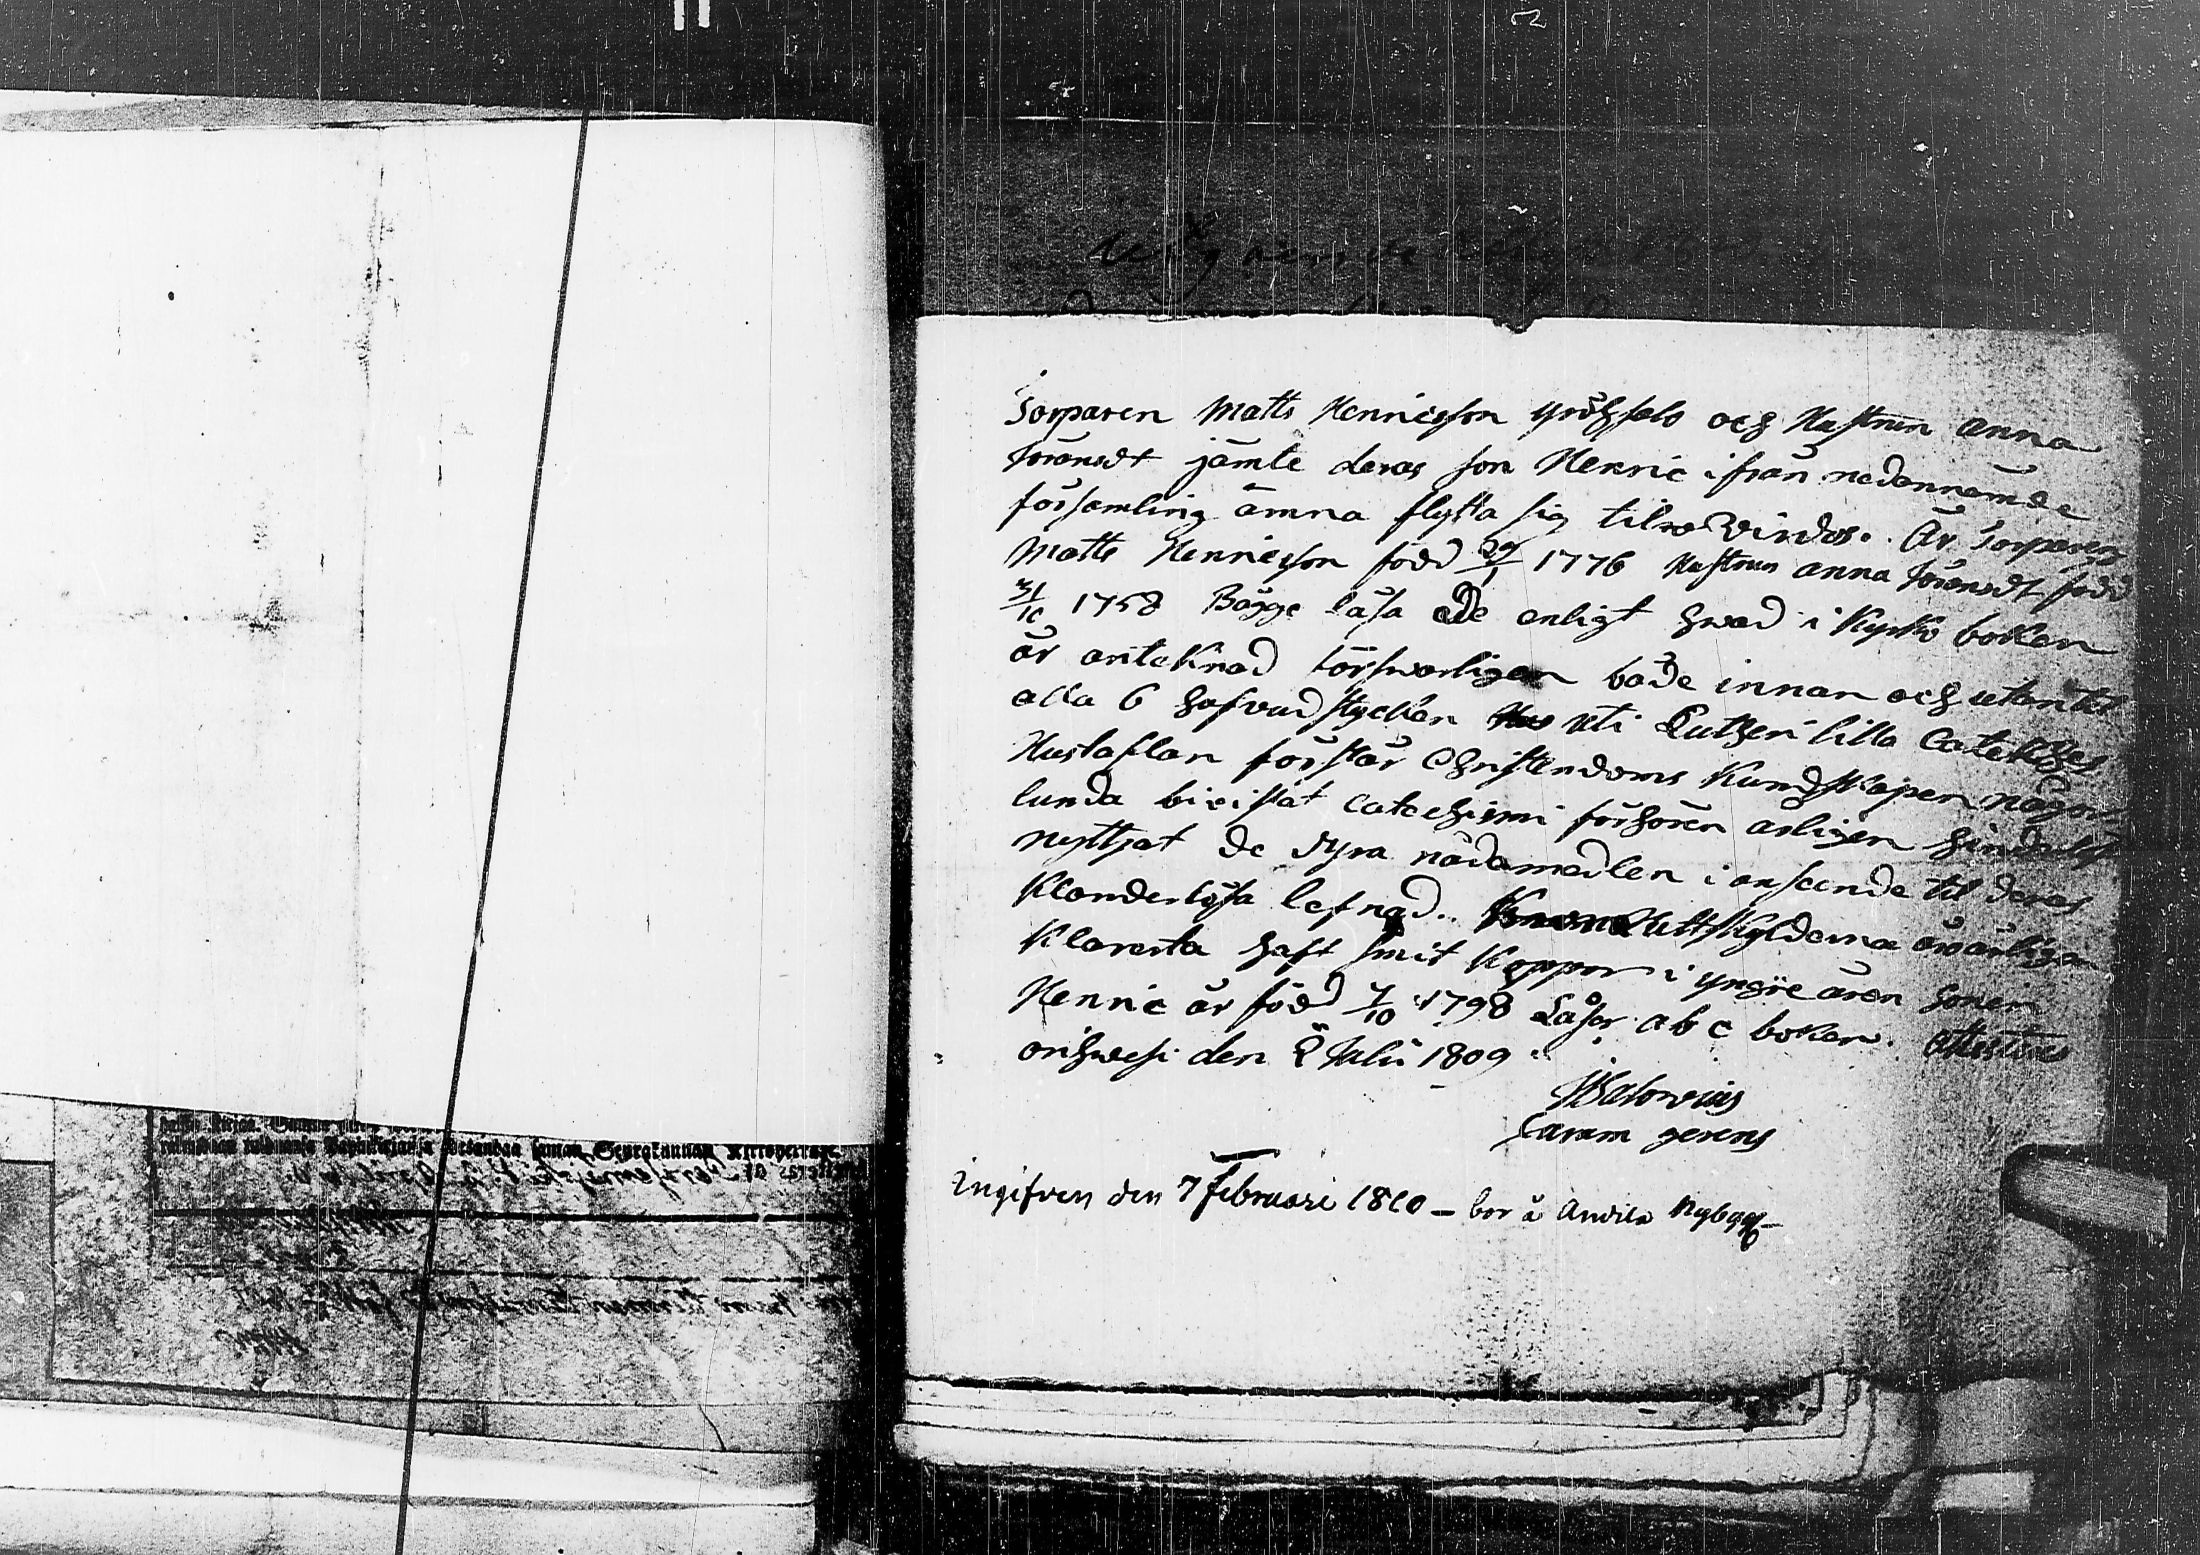 Torparen Matts Henricsson och Hustrun Anna
jämte deras son Henric ifrån nedannämde
församling ämna flytta sig til Virdois. Är Torparen
Matts Henricsson född 29/1 1776 Hustrun Anna född
31/10 1758 Bägge läsa De enligt hwad i Kyrko boken
är anteknad förswarligen både innan och utantil
alla 6 hufvudstycken uti Lutheri lilla Cateches
Hustaflan förstår Christendoms Kundskapen någor
lunda bivistat catechismi förhören årligen hinderlöst
nyttjat de dyra nådamedlen i anseende til deras
Klanderlösa lefnad. Uttskylderna
Klarerta haft smit Koppor i yngre åren Sonen
Henric är född 7/10 1798 Läser a b c boken. Attesteras
orihwesi den 2 Julii 1809
Salovius
Curam gerens
Ingifven den 7 Februari 1810 – bor å